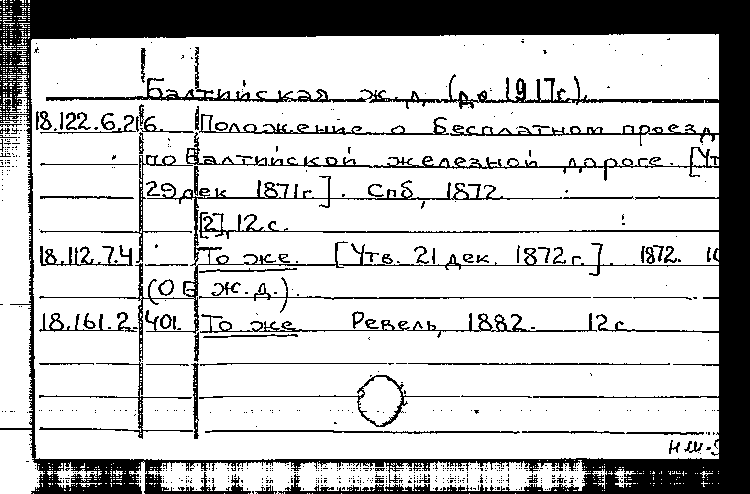 Балтийская ж.д. (до 1917г.).
18.122.6.216. Положение о бесплатном проезд
по Балтийской железной дороге. [Ут
29 дек 1871г]. Спб, 1872.
[2], 12 с.
18.112.7.4. То же. [Утв. 21 дек. 1872г.]. 1872. 10
(О Б ж.д.).
18.161.2.401. То же Ревель, 1882. 12 с